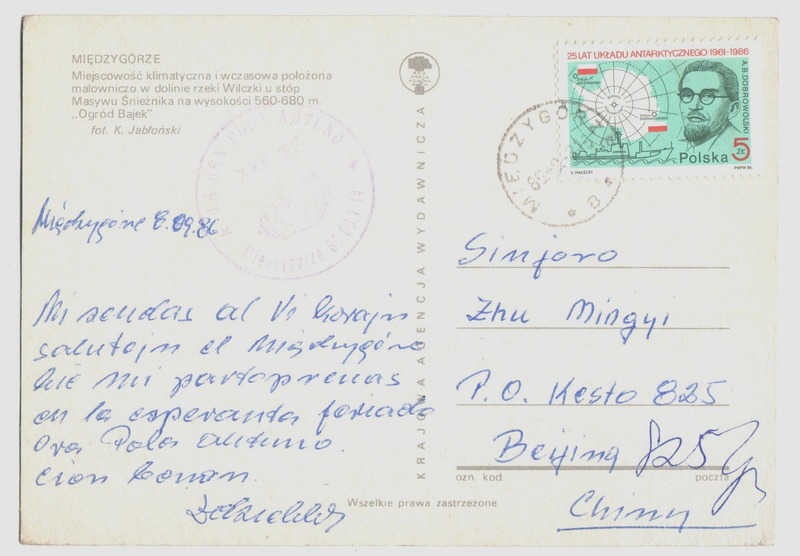 MIĘDZYGÓRZE
Miejscowość klimatyczna i wczasowa położona
malowniczo w dolinie rzeki Wilczki u stóp
Masywu Śnieżnika na wysokości 560-680 m.
„Ogród Bajek"
fot. K. Jabłoński
Międzygórze 8.09.86
Mi sendas al Vi korajn
salutojn el Międzygórze
kie mi partoprenas
en la esperanta feriado
Ora Pola Aŭtuno.
Ĉion bonan.
KRAJOWA AGENCJA WYDAWNICZA
Wszelkie prawa zastrzeżone
25 LAT UKŁADU ANTARKTYCZNEGO·1961-1986
A.B. DOBROWOLSKI
Polska 5 ZŁ
S. MAŁECKI
PWPW 86
MIĘDZYGÓRZE
ORA POLA AUTUNO
Sinjoro
Zhu Mingyi
P.O. Kesto 825
Beijing 825
ozn kod
poczta
Chiny